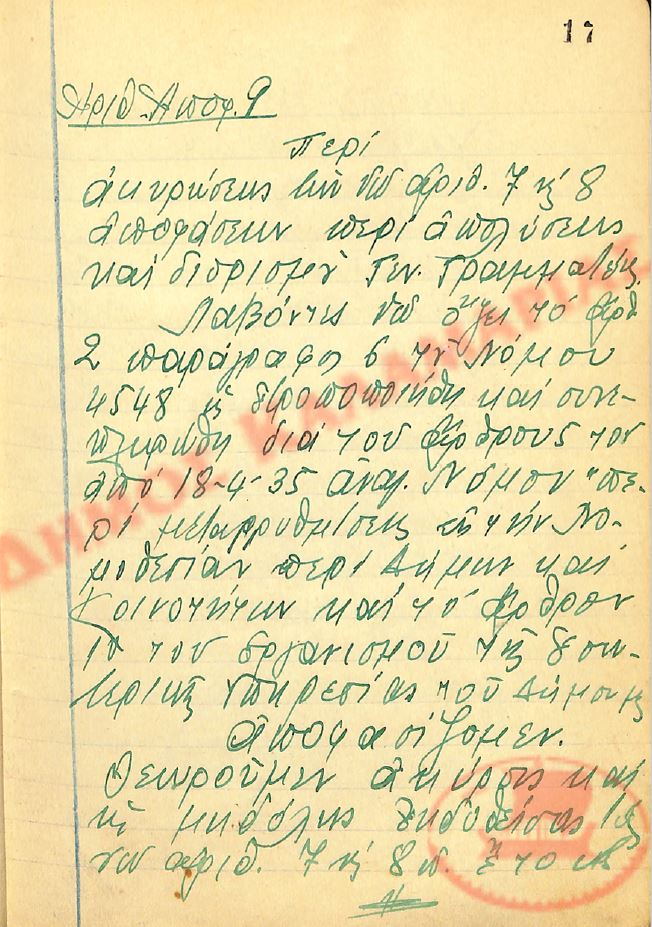 17
Ἀριθ. Ἀποφ. 9
Περὶ
ἀκυρώσεως τῶν ὑπ' ἀριθ. 7 κ' 8
ἀποφάσεων περὶ ἀπολύσεως
καὶ διορισμοῦ Γεν. Γραμματέως
Λαβόντες ὑπ' ὄψει τὸ ἄρθ.
2 παράγραφος 6 τοῦ Νόμου
4548 ὡς ἐτροποποιήθη καὶ συνε-
πληρώθη διὰ τοῦ ἄρθρου 5 τοῦ
ἀπὸ 18-4-35 ἀναγ. Νόμου "πε-
ρὶ μεταρρυθμίσεως τὴν Νο-
μοθεσίαν περὶ Δήμων καὶ
Κοινοτήτων καὶ τὸ ἄρθρον
τοῦ ὀργανισμοῦ τῆς ἐσω-
τερικῆς ὑπηρεσίας τοῦ Δήμου μας
ἀποφασίζομεν.
Θεωροῦμεν ἀκύρους καὶ
ὡς μηδόλως ἐκδοθείσας τὰς
ὑπ' ἀριθ. 7 κ' 8
ΔΗΜΟΣ ΚΑΛΑΜΑΡΙΑΣ